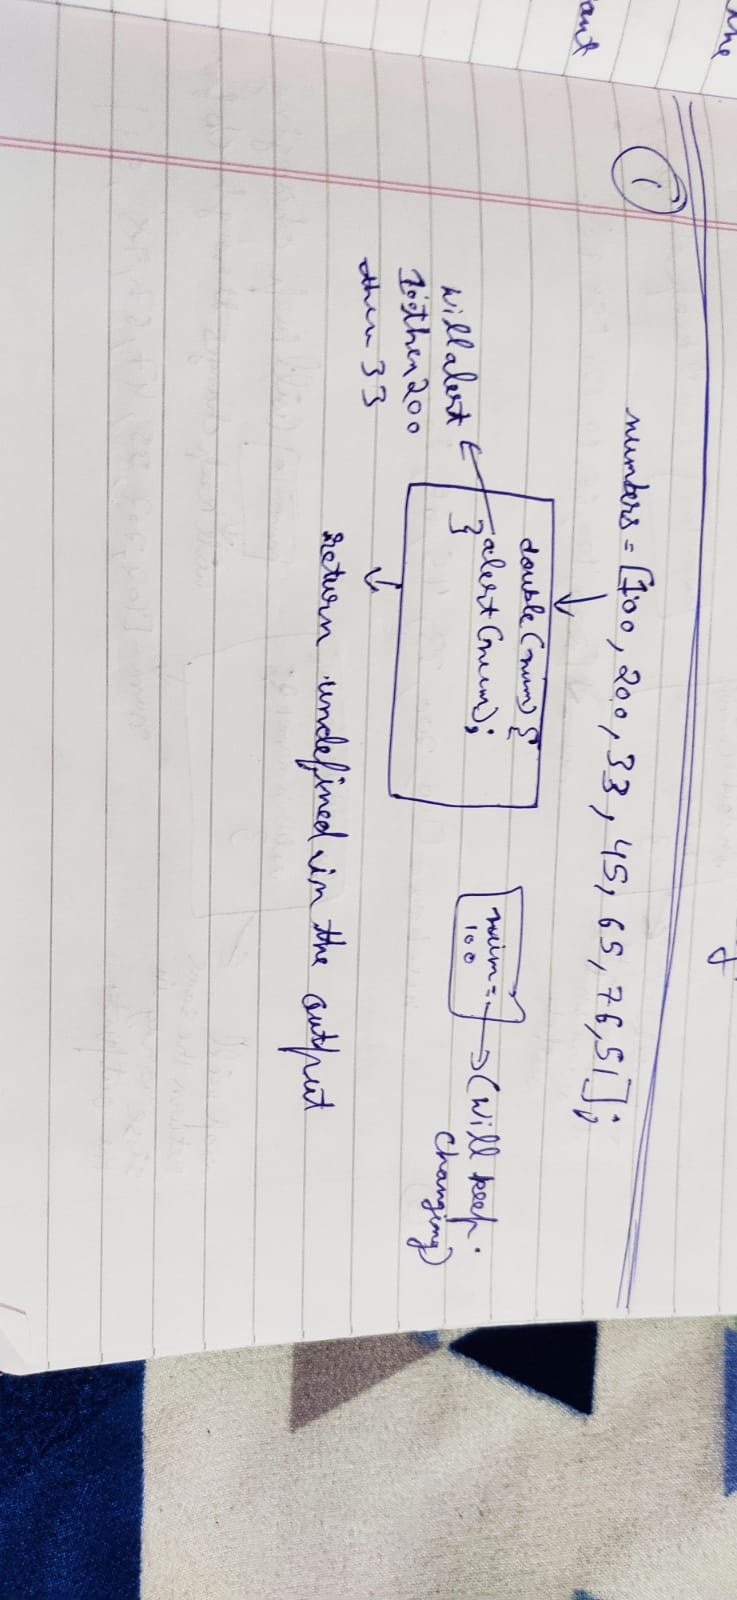 ant
the
①
numbers = [100, 200, 33, 45, 65, 76, 51];
double(num) {
alert(num);
}
will alert
100 then 200
then 33
num =
100
(will keep
changing)
return undefined in the output